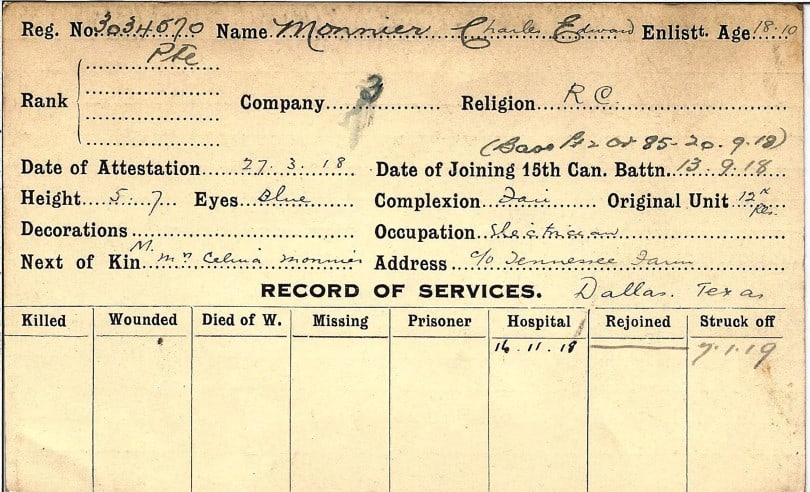 Reg. No. 3034570 Name Monnier Charles Edward Enlistt. Age 18-10
Pte
Rank Company 3 Religion R C.
(Base Pt 2 Or 85-20.9.18)
Date of Attestation 27.3.18 Date of Joining 15th Can. Battn. 13.9.18
Height 5.7 Eyes Blue Complexion Fair Original Unit 12th Res.
Decorations Occupation Electrician
Next of Kin M. Mrs Celina Monnier Address c/o Tennessee Farm
RECORD OF SERVICES. Dallas. Texas
Killed Wounded Died of W. Missing Prisoner Hospital Rejoined Struck off
16.11.18 7.1.19